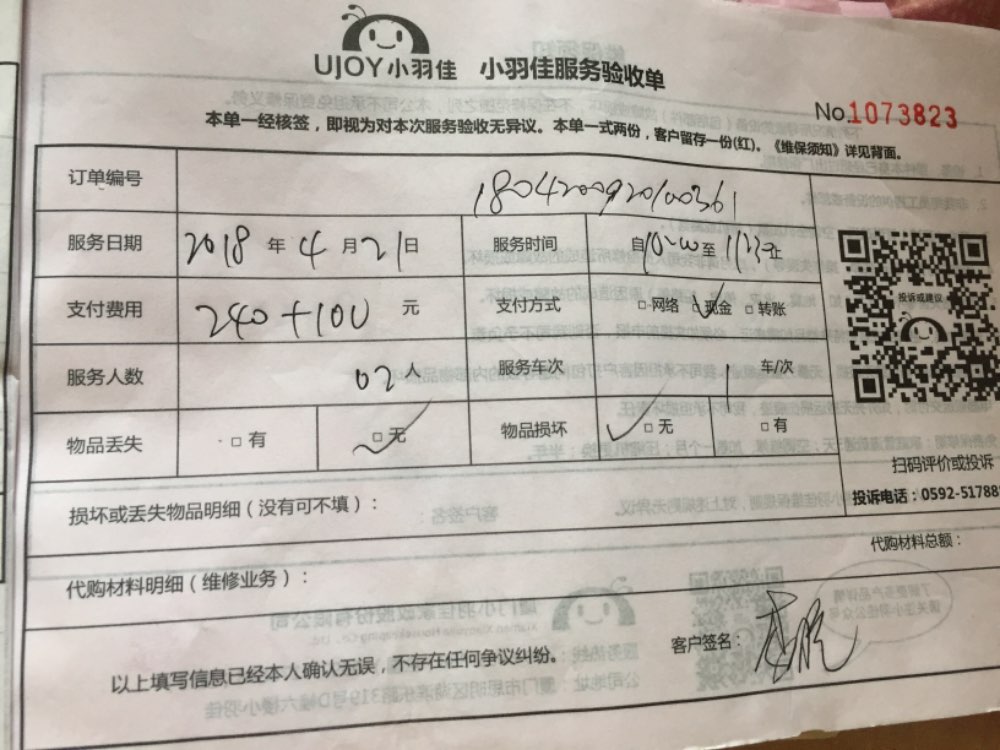 UJOY小羽佳 小羽佳服务验收单
No.1073823
本单一经核签，即视为对本次服务验收无异议。本单一式两份，客户留存一份(红)。《维保须知》详见背面。
订单编号 1804200920100361
服务日期 2018 年 4 月 21 日 服务时间 自 10:00 至 止
支付费用 240+100 元 支付方式 □网络 □现金 □转账
服务人数 02人 服务车次 车/次
物品丢失 □有 □无 物品损坏 □无 □有
投诉或建议
扫码评价或投诉
投诉电话：0592-51788
损坏或丢失物品明细（没有可不填）：
代购材料明细（维修业务）： 代购材料总额：
以上填写信息已经本人确认无误，不存在任何争议纠纷。 客户签名：